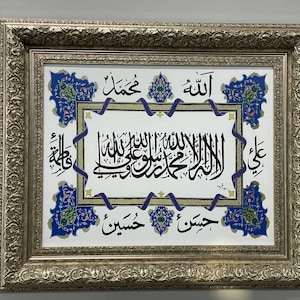 الله محمد
علي
لا إله إلا الله محمد رسول الله علي ولي الله
فاطمة
حسن حسين